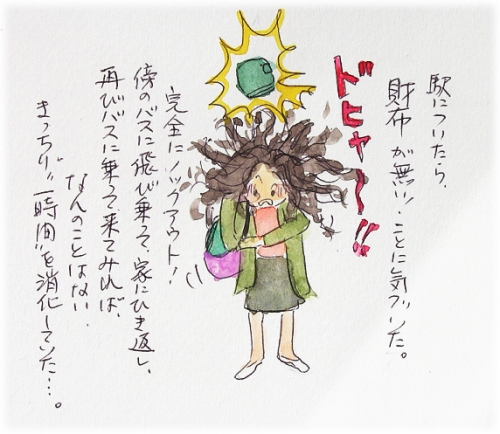 駅についたら、
財布が無い!ことに気づいた。
ドヒャ〜!!
完全にノックアウト!
傍のバスに飛び乗って、家にひき返し、
再びバスに乗って来てみれば、
なんのことはない、
きっちり"一時間"を消化していた…。